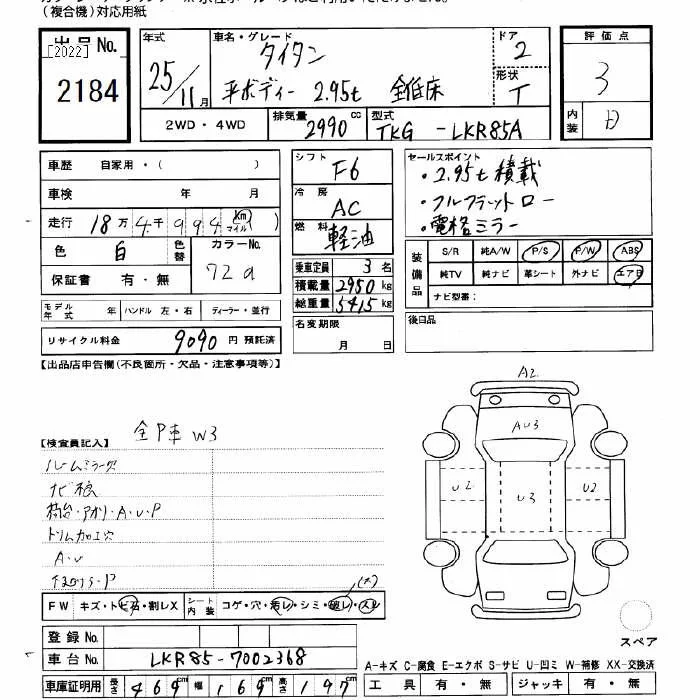 (複合機)対応用紙
出品No.
[2022]
2184
年式
25/11月
車名・グレード
タイタン
平ボディー 2.95t 全低床
ドア
2
形状
T
評価点
3
内装
D
2WD・4WD
排気量
2990 cc
型式
TKG -LKR85A
車歴 自家用・( )
車検 年 月
走行 18万4千994 Km マイル ( )
色 白 色替 カラーNo. 729
保証書 有・無
シフト F6
冷房 AC
燃料 軽油
乗車定員 3名
積載量 2950 kg
総重量 5415 kg
セールスポイント
・2.95t積載
・フルフラットロー
・電格ミラー
装備品
S/R 純A/W P/S P/W ABS
純TV 純ナビ 革シート 外ナビ エアB
ナビ型番:
モデル年式 年 ハンドル 左・右 ディーラー・並行
リサイクル料金 9090 円 預託済
名変期限
月 日
後日品
【出品店申告欄(不良箇所・欠品・注意事項等)】
全P車 W3
【検査員記入】
ルームミラー穴
ナビ痕
荷台・アオリ・A・U・P
トリム加工穴
A・U
A2
AU3
U2
U3
U2
FW キズ・トビ石・割レX シート内装 コゲ・穴・汚レ・シミ・破レ・スレ
登録No.
車台No. LKR85-7002368
車庫証明用 長さ 469cm 幅 169cm 高さ 197cm
スペア
A-キズ C-腐食 E-エクボ S-サビ U-凹ミ W-補修 XX-交換済
工具 有・無 ジャッキ 有・無